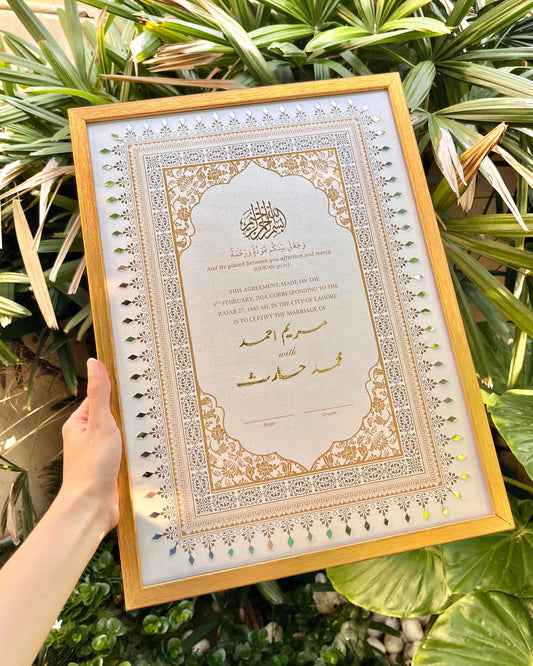 بسم الله الرحمن الرحيم
وَجَعَلَ بَيْنَكُم مَّوَدَّةً وَرَحْمَةً
And He placed between you affection and mercy.
(QUR'AN 30:21)
THIS AGREEMENT, MADE ON THE
8TH FEBRUARY, 2024, CORRESPONDING TO THE
RAJAB 27, 1445 AH, IN THE CITY OF LAHORE
IS TO CERTIFY THE MARRIAGE OF
مریم احمد
with
محمد حارث
Bride Groom